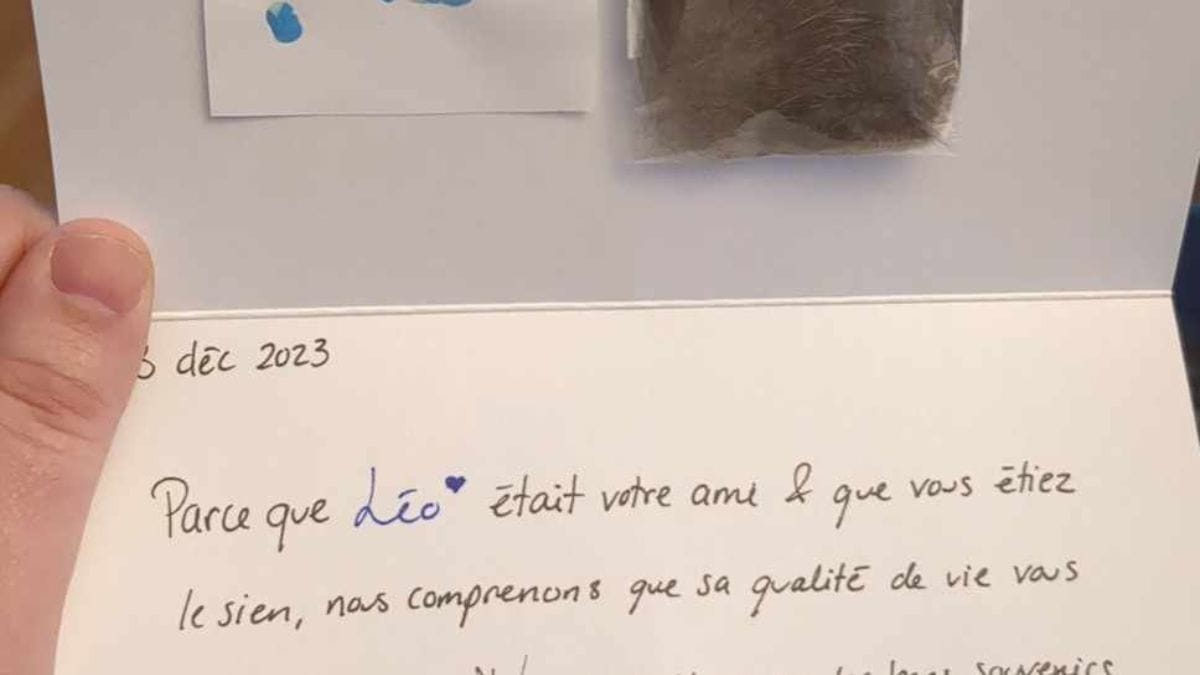 3 déc 2023
Parce que Léo♥ était votre ami & que vous étiez
le sien, nous comprenons que sa qualité de vie vous
souvenirs